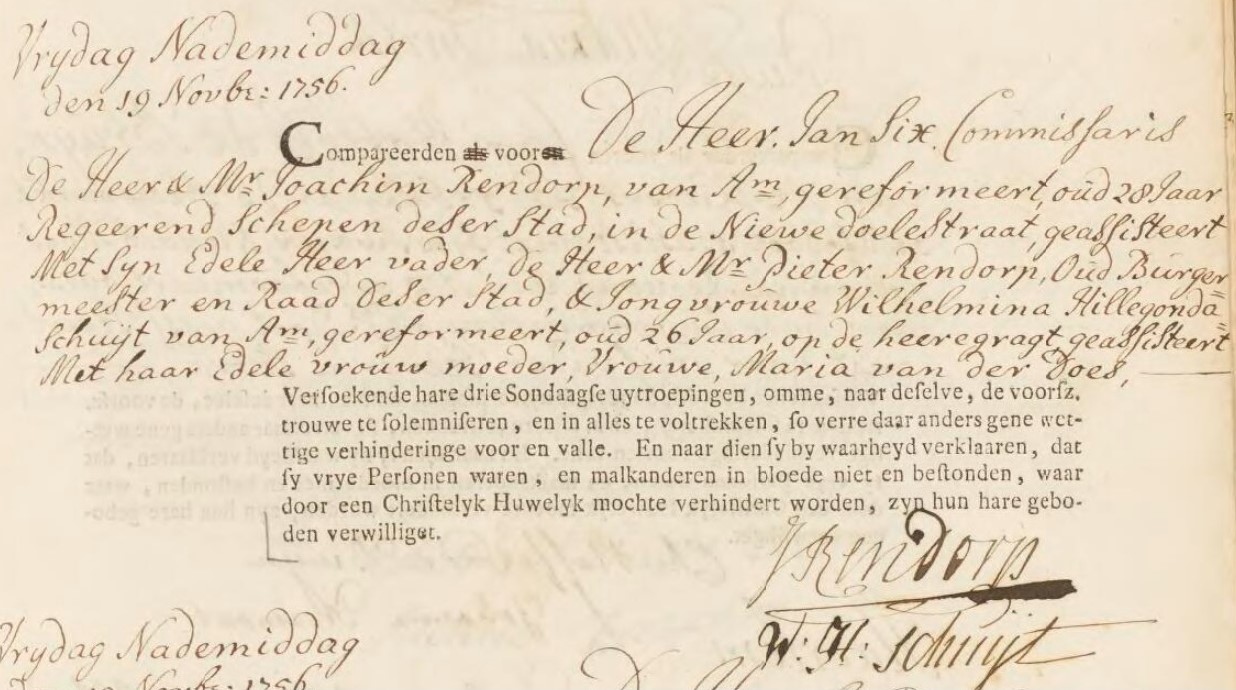 Vrydag Nademiddag
den 19 Novbr: 1756.
Compareerden als vooren De Heer. Jan Six. Commissaris
De Heer & Mr Joachim Rendorp, van Am, gereformeert, oud 28 Jaar
Regeerend Schepen deser Stad, in de Niewe doelestraat, geassisteert
Met Syn Edele Heer vader, de Heer & Mr Pieter Rendorp, Oud Burger=
meester en Raad Deser Stad, & Jongvrouwe Wilhelmina Hillegonda=
Schuijt van Am, gereformeert, oud 26 Jaar, op de heeregragt, geassisteert
Met haar Edele vrouw moeder, Vrouwe, Maria van der Does,
Versoekende hare drie Sondaagse uytroepingen, omme, naar deselve, de voorsz.
trouwe te solemniseren, en in alles te voltrekken, so verre daar anders gene wet-
tige verhinderinge voor en valle. En naar dien sy by waarheyd verklaaren, dat
sy vrye Personen waren, en malkanderen in bloede niet en bestonden, waar
door een Christelyk Huwelyk mochte verhindert worden, zyn hun hare gebo-
den verwilliget.
J Rendorp
W: H: Schuijt
Vrydag Nademiddag
den 19 Novbr: 1756.
De